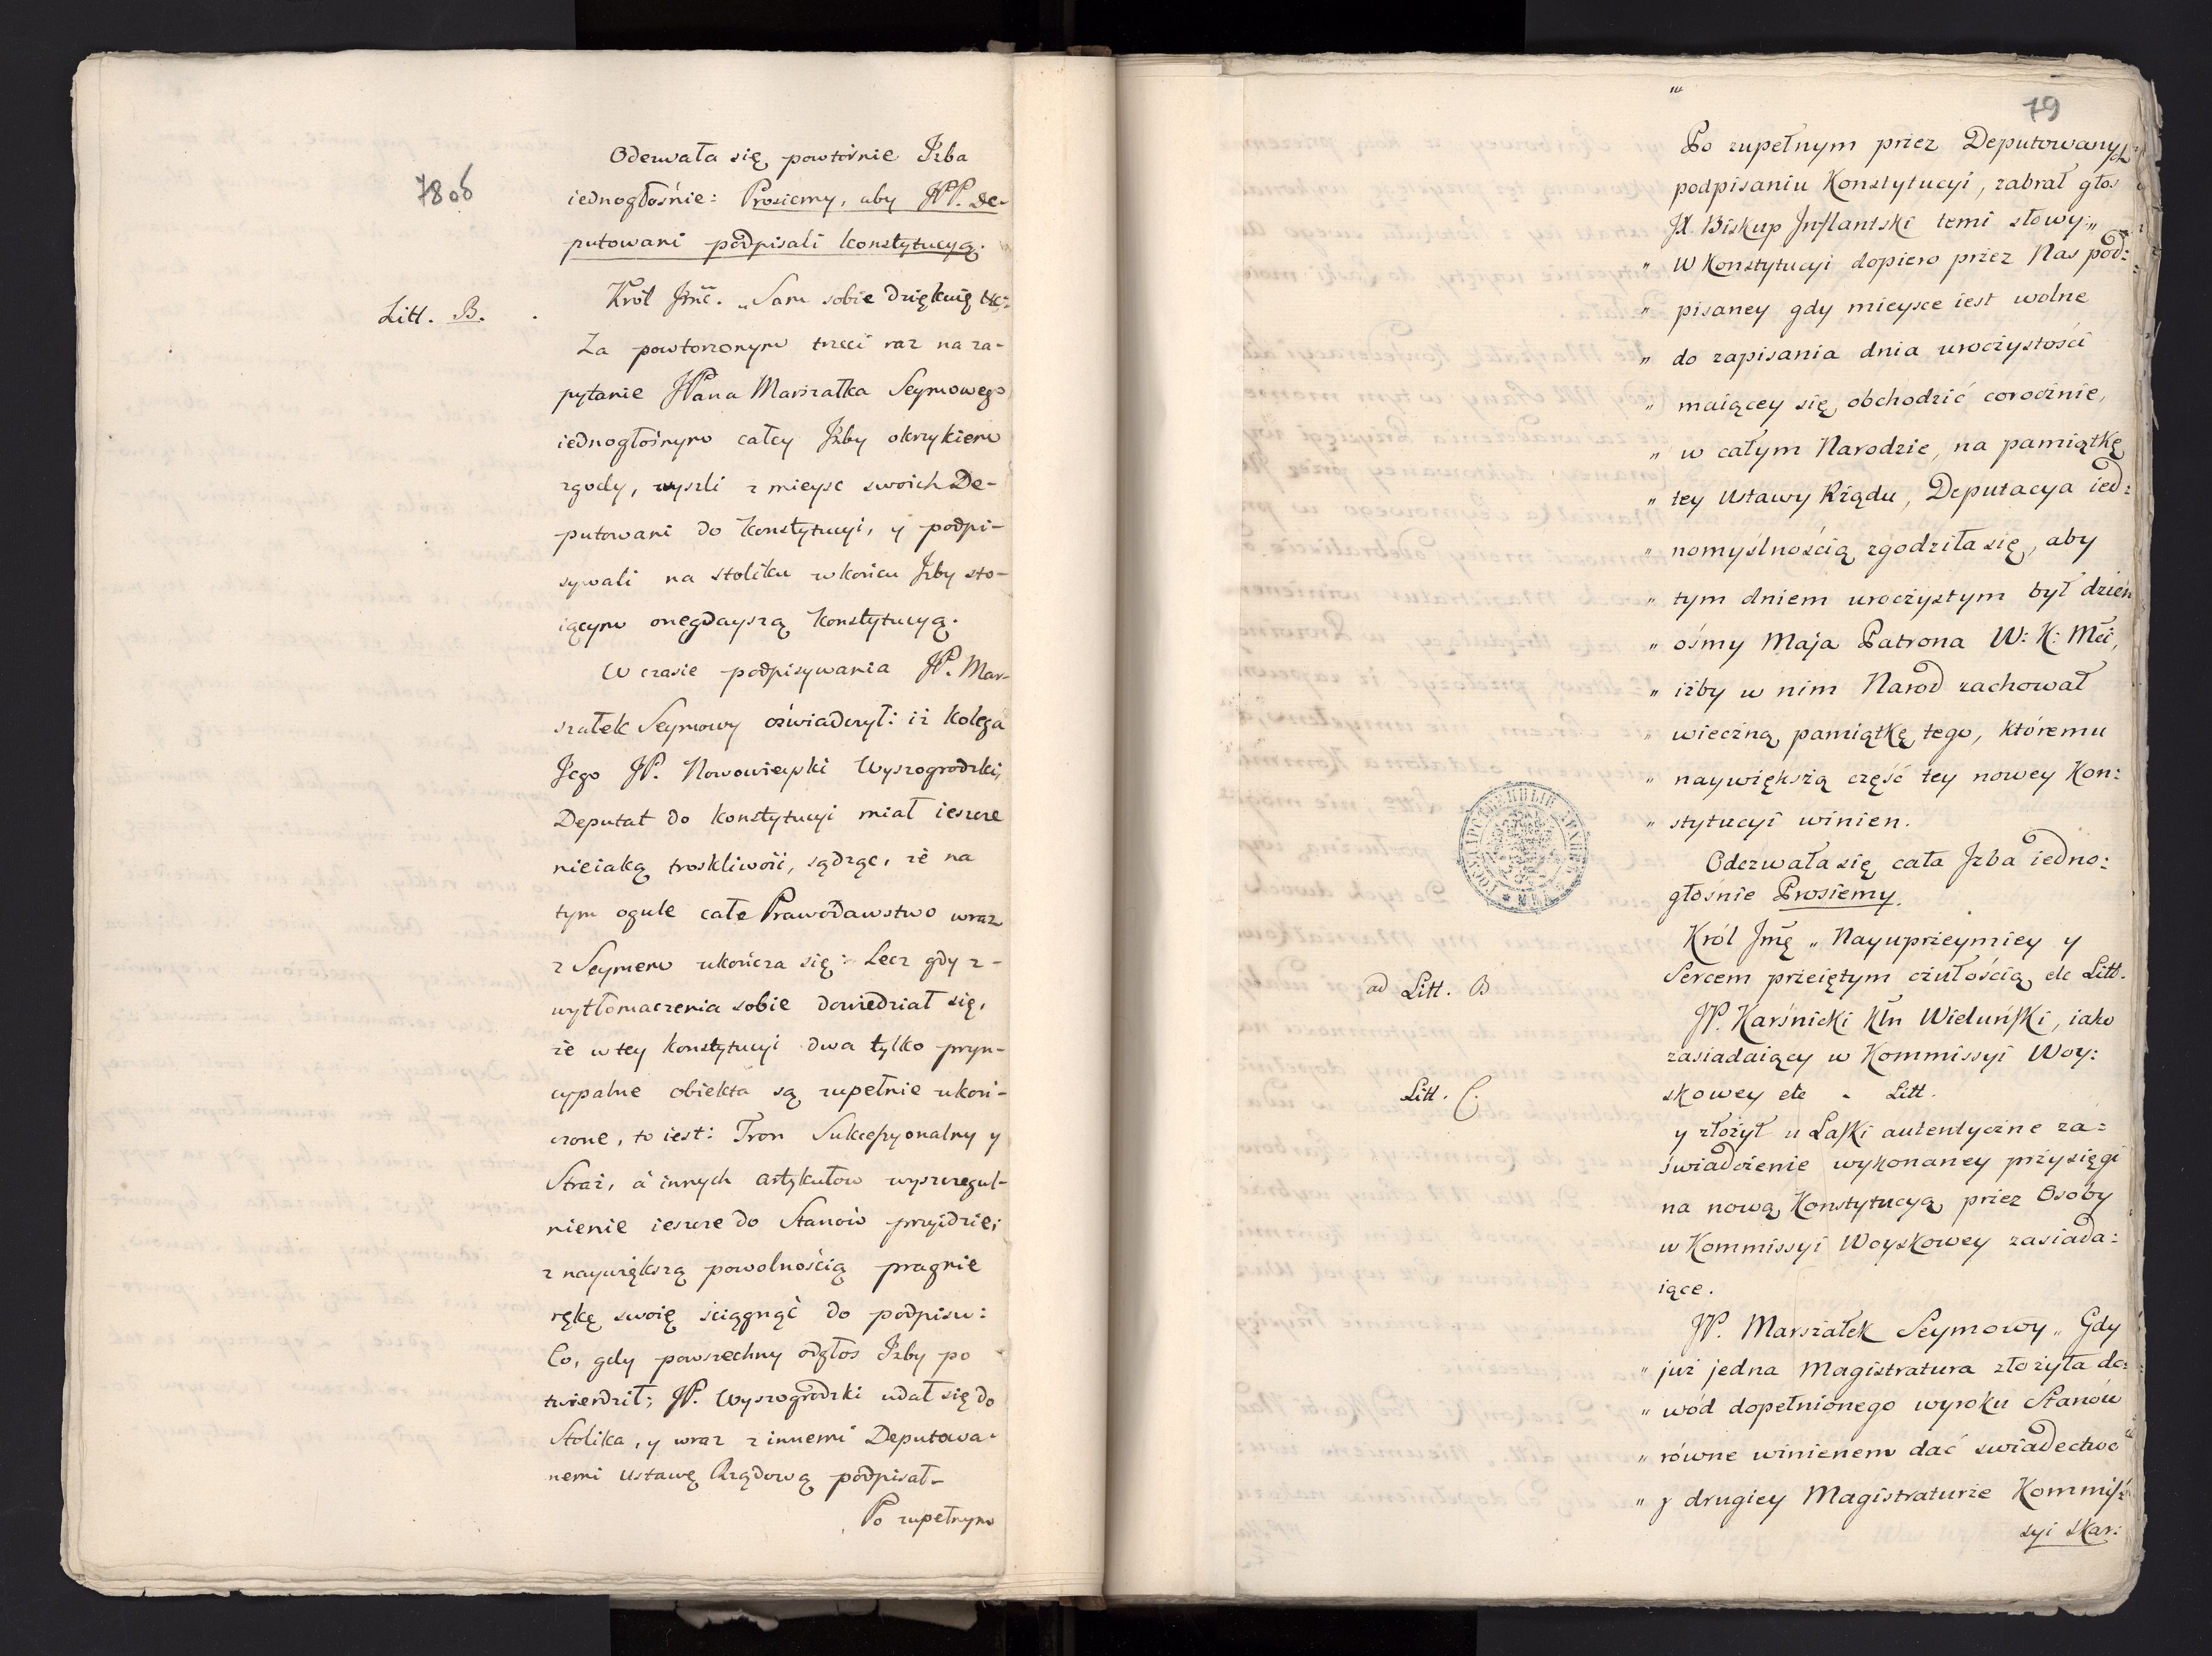 78 об
Odezwała się powtórnie Izba
iednogłośnie: Prosiemy, aby JPP. De-
putowani podpisali konstytucyą.
Litt. B.
Król Jmć. „Sam sobie dziękuię etc:
Za powtorzonym trzeci raz na za-
pytanie JPana Marszałka Seymowego
iednogłośnym całey Izby okrzykiem
zgody, wyszli z mieysc swoich De-
putowani do konstytucyi, y podpi-
sywali na stoliku w końcu Izby sto-
iącym onegdayszą konstytucyą.
W czasie podpisywania JP. Mar-
szałek Seymowy oświadczył: iż kolega
Jego JP. Nowowieyski Wyszogrodzki,
Deputat do konstytucyi miał ieszcze
nieiaką troskliwość, sądząc, że na
tym ogule całe Prawodawstwo wraz
z Seymem ukończa się: Lecz gdy z-
wytłomaczenia sobie dowiedział się,
że w tey konstytucyi dwa tylko pryn-
cypalne obiekta są zupełnie ukoń-
czone, to iest: Tron Sukcessyonalny y
Straż, à innych artykułow wyszczegul-
nienie ieszcze do Stanów przyidzie;
z naywiększą powolnością pragnie
rękę swoię ściągnąć do podpisu:
Co, gdy powszechny odgłos Izby po
twierdził; JP. Wyszogrodzki udał się do
Stolika, y wraz z innemi Deputowa-
nemi ustawę Rządową podpisał.
Po zupełnym
79
Po zupełnym przez Deputowanych
podpisaniu Konstytucyi, zabrał głos
JX Biskup Inflantski temi słowy: „
„ W Konstytucyi dopiero przez Nas pod:
„ pisaney gdy mieysce iest wolne
„ do zapisania dnia uroczystości
„ maiącey się obchodzić corocznie,
„ w całym Narodzie, na pamiątkę
„ tey Ustawy Rządu, Deputacya ied:
„ nomyślnością zgodziła się, aby
„ tym dniem uroczystym był dzień
„ ośmy Maja Patrona W: K: Mći,
„ iżby w nim Narod zachował
„ wieczną pamiątkę tego, któremu
„ naywiększą część tey nowey Kon:
„ stytucyi winien.
Odezwała się cała Izba iedno:
głośnie Prosiemy.
Król Jmć „ Nayuprzeymiey y
Sercem przeiętym czułością etc Litt.
ad Litt. B
JP. Karśnicki Kłn Wieluński, iako
zasiadaiący w Kommissyi Woy:
skowey etc „ Litt.
Litt. C.
y złożył u Laski autentyczne za:
świadczenie wykonaney przysięgi
na nową Konstytucyą przez Osoby
w Kommissyi Woyskowey zasiada:
iące.
JP. Marszałek Seymowy „ Gdy
„ już jedna Magistratura złożyła do:
„ wód dopełnionego wyroku Stanów
„ równe winienem dać swiadectwo
„ y drugiey Magistraturze Kommis:
syi Skar: